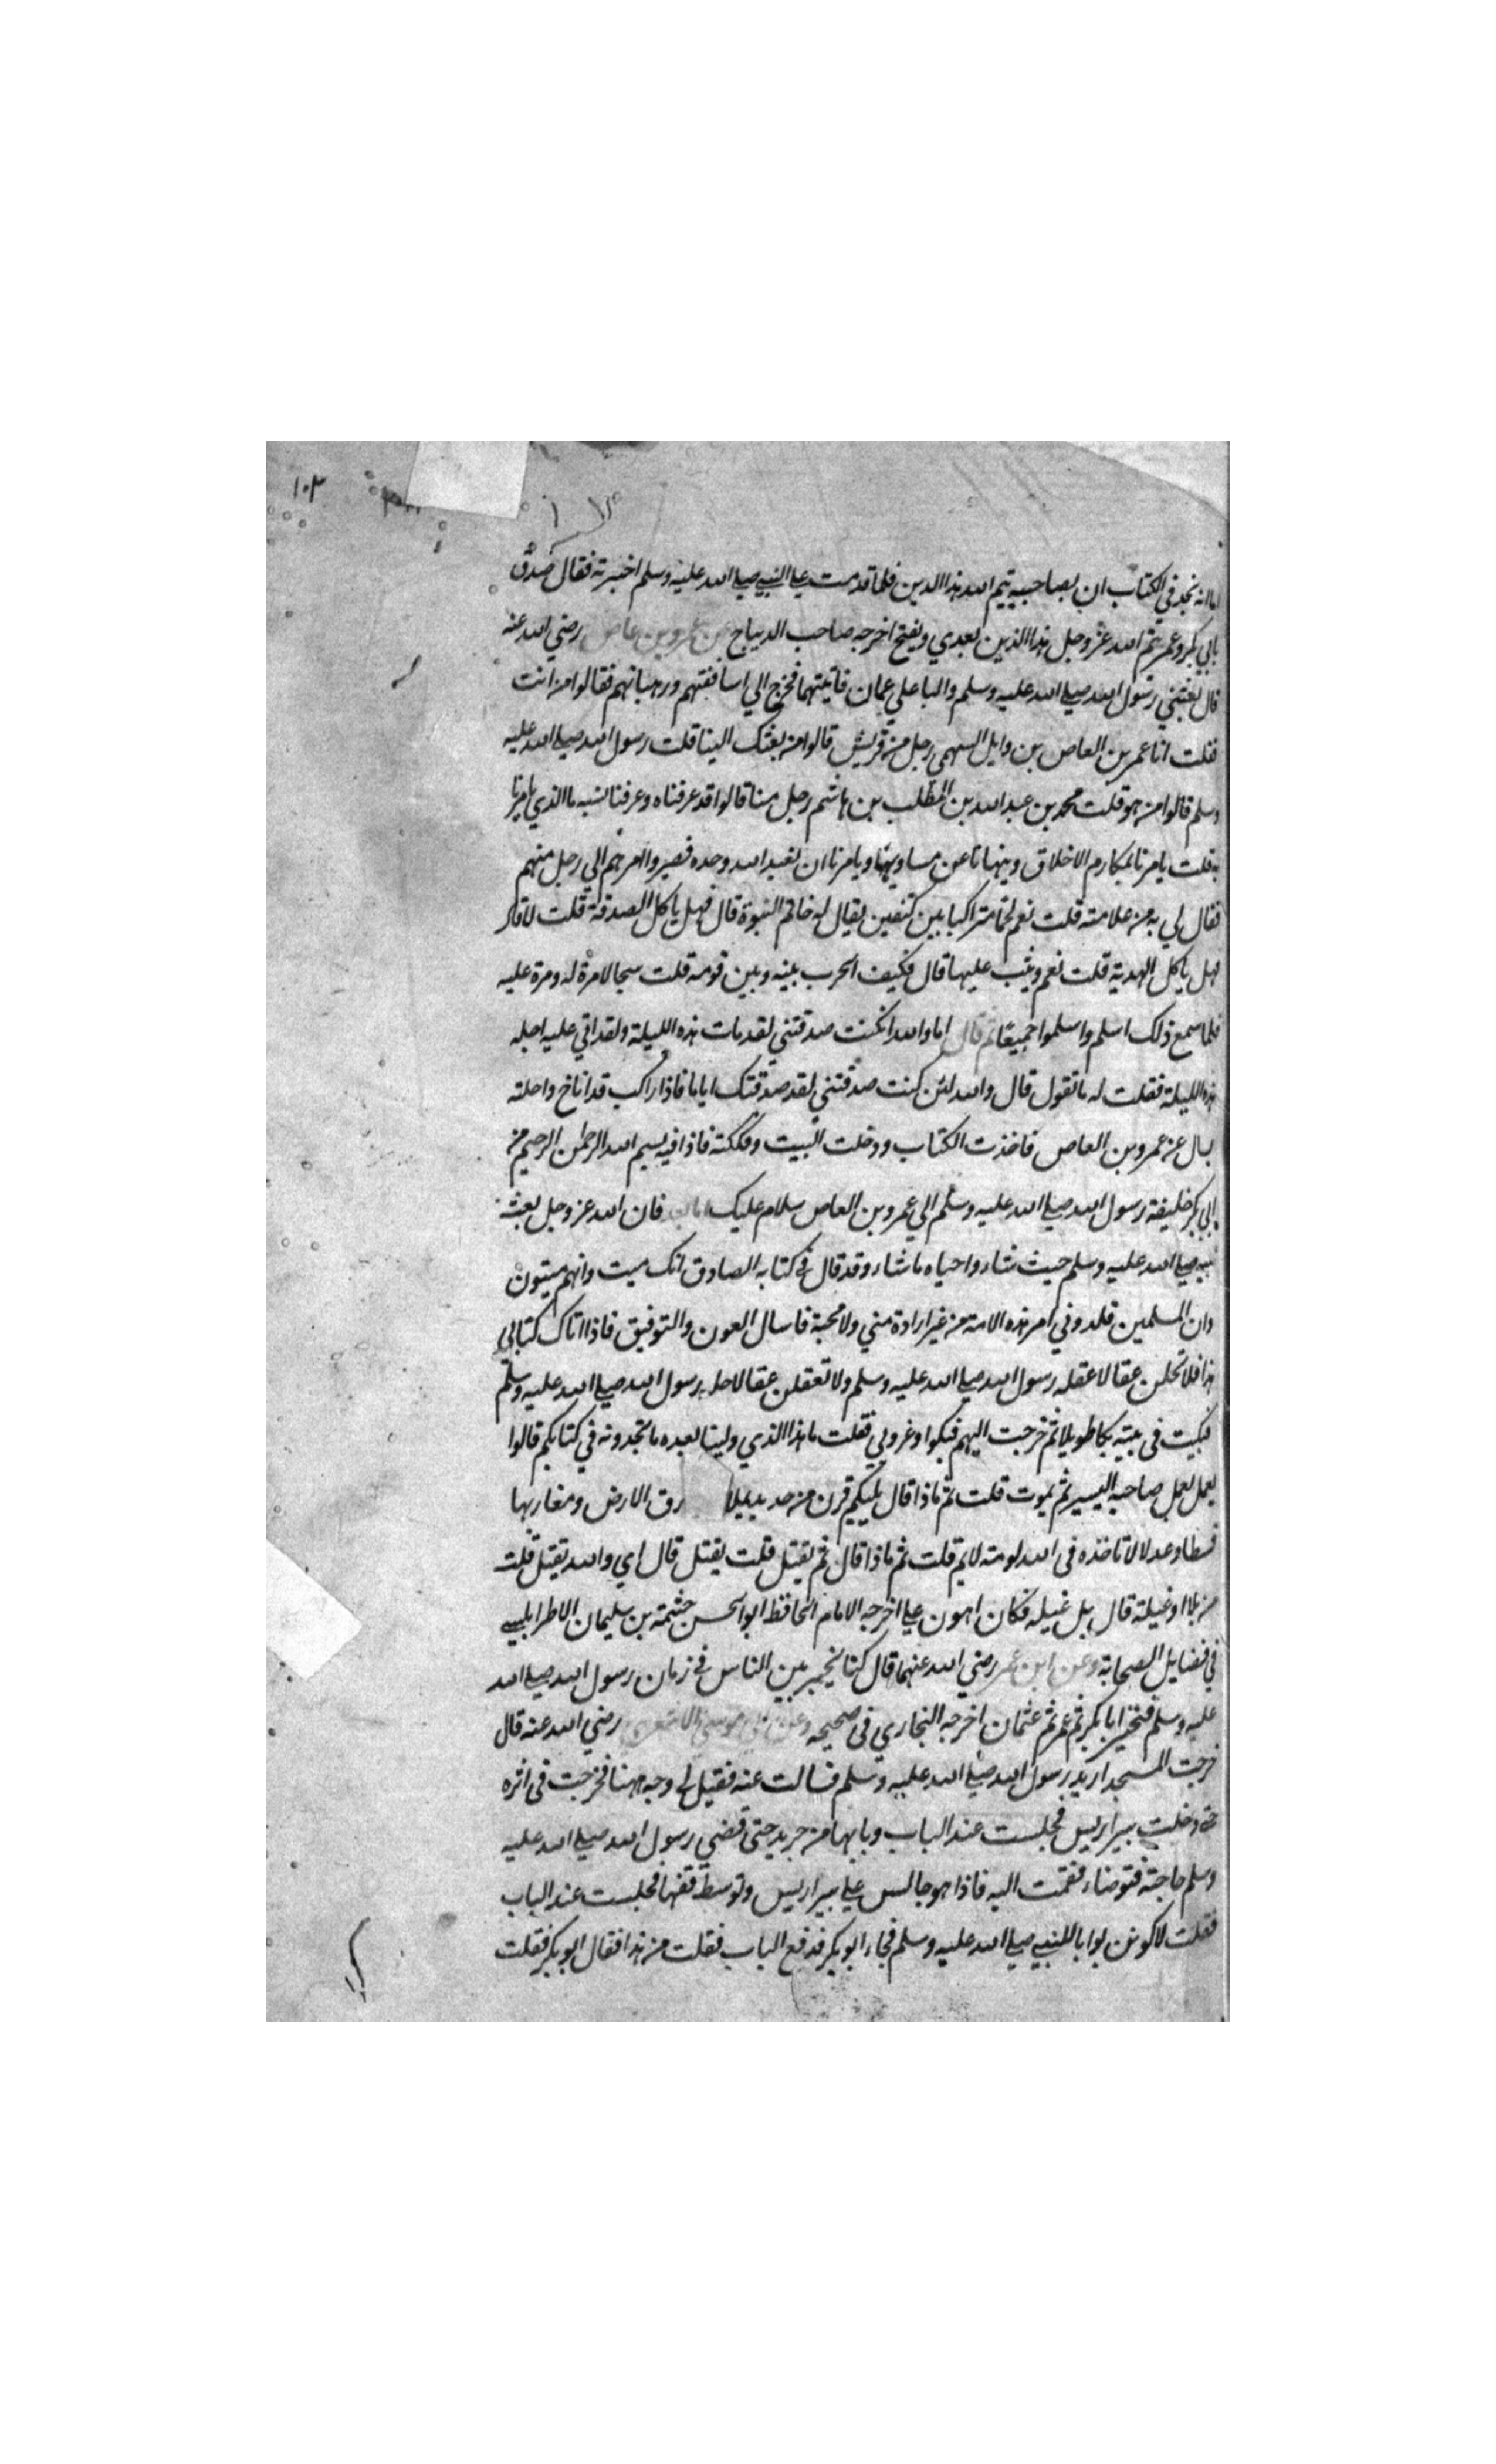 ١٠٣
اما انه نجد في الكتاب ان بصاحبيه يتم الله هذا الدين فلما قدمت علي النبي صلي الله عليه وسلم اخبرته فقال صدق
بابي بكر وعمر يتم الله عز وجل هذا الدين بعدي ويفتح اخرجه صاحب الديباج عن عمرو بن عاص رضي الله عنه
قال بعثني رسول الله صلي الله عليه وسلم واليا علي عمان فاتيتهم فخرج الي اساقفتهم ورهبانهم فقالوا من انت
فقلت انا عمر بن العاص بن وايل السهمي رجل من قريش قالوا من بعثك الينا قلت رسول الله صلي الله عليه
وسلم قالوا من هو قلت محمد بن عبد الله بن المطلب بن هاشم رجل منا قالوا قد عرفناه وعرفنا نسبه ما الذي يامرنا
به قلت يامرنا بمكارم الاخلاق وينهانا عن مساويها ويامرنا ان نعبد الله وحده فصيروا امرهم الي رجل منهم
فقال لي به من علامته قلت نعم لحما متراكبا بين كتفين يقال له خاتم النبوة قال فهل ياكل الصدقة قلت لا قال
فهل ياكل الهدية قلت نعم ويثب عليها قال فكيف الحرب بينه وبين قومه قلت سجالا مرة له ومرة عليه
فلما سمع ذلك اسلم واسلموا جميعا ثم قال اما والله ان كنت صدقتني لقد مات هذه الليلة ولقد اتي عليه اجله
هذه الليلة فقلت له ما تقول قال والله لئن كنت صدقتني لقد صدقتك اياما فاذا راكب قد اناخ واحلته
يسال عن عمرو بن العاص فاخذت الكتاب ودخلت البيت وفككته فاذا فيه بسم الله الرحمن الرحيم من
ابي بكر خليفة رسول الله صلي الله عليه وسلم الي عمرو بن العاص سلام عليك اما بعد فان الله عز وجل بعث
نبيه صلي الله عليه وسلم حيث شاء واحياه ما شاء وقد قال في كتابه الصادق انك ميت وانهم ميتون
وان المسلمين قلدوني امر هذه الامة من غير ارادة مني ولا محبة فاسال العون والتوفيق فاذا اتاك كتابي
هذا فلا تحلن عقالا عقله رسول الله صلي الله عليه وسلم ولا تعقلن عقالا حله رسول الله صلي الله عليه وسلم
فبكيت في بيته بكا طويلا ثم خرجت اليهم فبكوا وعزوني فقلت ما هذا الذي ولينا بعده ما تجدونه في كتابكم قالوا
يعمل بعمل صاحبه اليسير ثم يموت قلت ثم ماذا قال يليكم قرن من حديد يملا رق الارض ومغاربها
قسطا وعدلا لا تاخذه في الله لومة لايم قلت ثم ماذا قال ثم يقتل قلت يقتل قال اي والله يقتل قلت
من بلا او غيلة قال بل غيله فكان اهون علي اخرجه الامام الحافظ ابو الحسن خثيمة بن سليمان الاطرابلسي
في فضايل الصحابة وعن ابن عمر رضي الله عنهما قال كنا نخير بين الناس في زمان رسول الله صلي الله
عليه وسلم فنخير ابا بكر ثم عمر ثم عثمان اخرجه البخاري في صحيحه وعن ابي موسي الاشعري رضي الله عنه قال
خرجت المسجد اريد رسول الله صلي الله عليه وسلم فسالت عنه فقيل لي وجه ههنا فخرجت في اثره
حتي دخلت بير اريس فجلست عند الباب وبابها من جريد حتي قضي رسول الله صلي الله عليه
وسلم حاجته فتوضاء فقمت اليه فاذا هو جالس علي بير اريس وتوسط قفها فجلست عند الباب
فقلت لاكونن بوابا للنبي صلي الله عليه وسلم فجاء ابو بكر فدفع الباب فقلت من هذا فقال ابو بكر فقلت